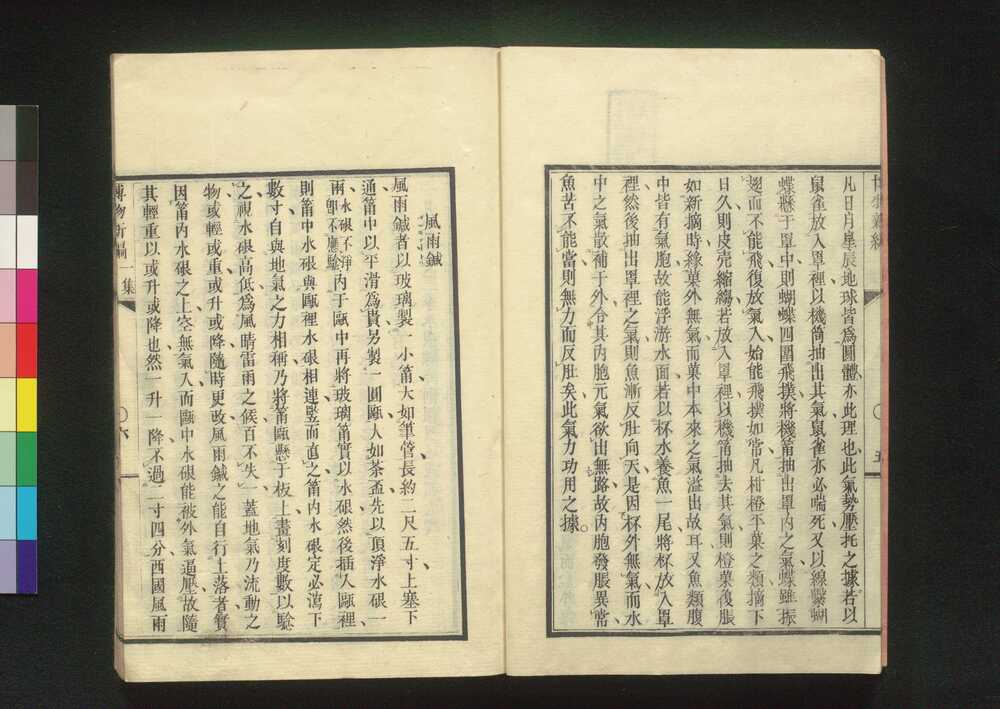 凡日月星辰地球皆爲圓體亦此理也此氣勢壓托之據若以
鼠雀放入罩裡以機筒抽出其氣鼠雀亦必喘死又以線繫蝴
蝶懸于罩中則蝴蝶四圍飛撲將機筩抽出罩內之氣蝶雖振
翅而不能飛復放氣入始能飛撲如常凡柑橙平菓之類摘下
日久則皮壳縮縐若放入罩裡以機筩抽去其氣則橙菓復脹
如新摘時緣菓外無氣而菓中本來之氣溢出故耳又魚類腹
中皆有氣胞故能浮游水面若以杯水養魚一尾將杯放入罩
裡然後抽出罩裡之氣則魚漸反肚向天是因杯外無氣而水
中之氣散補于外令其內胞元氣欲出無路故內胞發脹異常
魚苦不能當則無力而反肚矣此氣力功用之據
博物新編
五
風雨鍼
風雨鍼者以玻璃製一小筩大如筆管長約二尺五寸上塞下
通筩中以平滑爲貴另製一圓甌大如茶盃先以頂淨水硍一
兩水硍不淨卽不應騐內于甌中再將玻璃筩實以水硍然後插入甌裡
則筩中水硍與甌裡水硍相連豎而直之筩內水硍定必瀉下
數寸自與地氣之力相稱乃將筩甌懸于板上畫刻度數以騐
之視水硍高低爲風晴雷雨之候百不失一蓋地氣乃流動之
物或輕或重或升或降隨時更改風雨鍼之能自行上落者實
因筩內水硍之上空無氣入而甌中水硍能被外氣逼壓故隨
其輕重以或升或降也然一升一降不過二寸四分西國風雨
博物新編一集
六